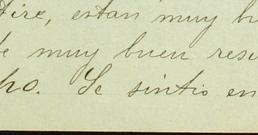 tire, estan muy b
e muy buen res
ho. Se sintio en